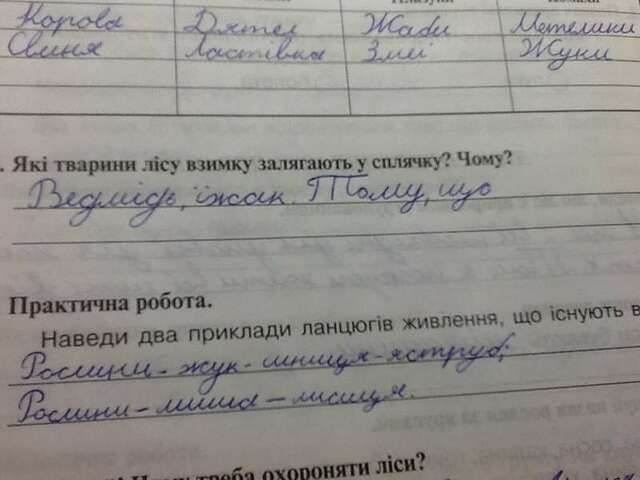 Корова Дятел Жаби Метелики
Свиня Ластівка Змеї Жуки
. Які тварини лісу взимку залягають у сплячку? Чому?
Ведмідь, їжак. Тому, що
Практична робота.
Наведи два приклади ланцюгів живлення, що існують в
Рослини - жук - синиця - яструб;
Рослини - миша - лисиця.
треба охороняти ліси?